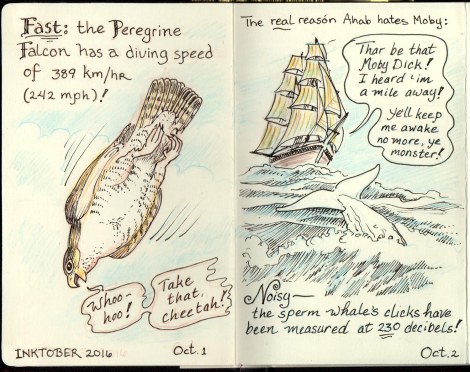 Fast: the Peregrine
Falcon has a diving speed
of 389 km/hr
(242 mph)!
Whoo-
hoo!
Take
that,
cheetah!
INKTOBER 2016
Oct. 1
The real reason Ahab hates Moby:
Thar be that
Moby Dick!
I heard 'im
a mile away!
Ye'll keep
me awake
no more, ye
monster!
Noisy—
the sperm whale's clicks have
been measured at 230 decibels!
Oct. 2